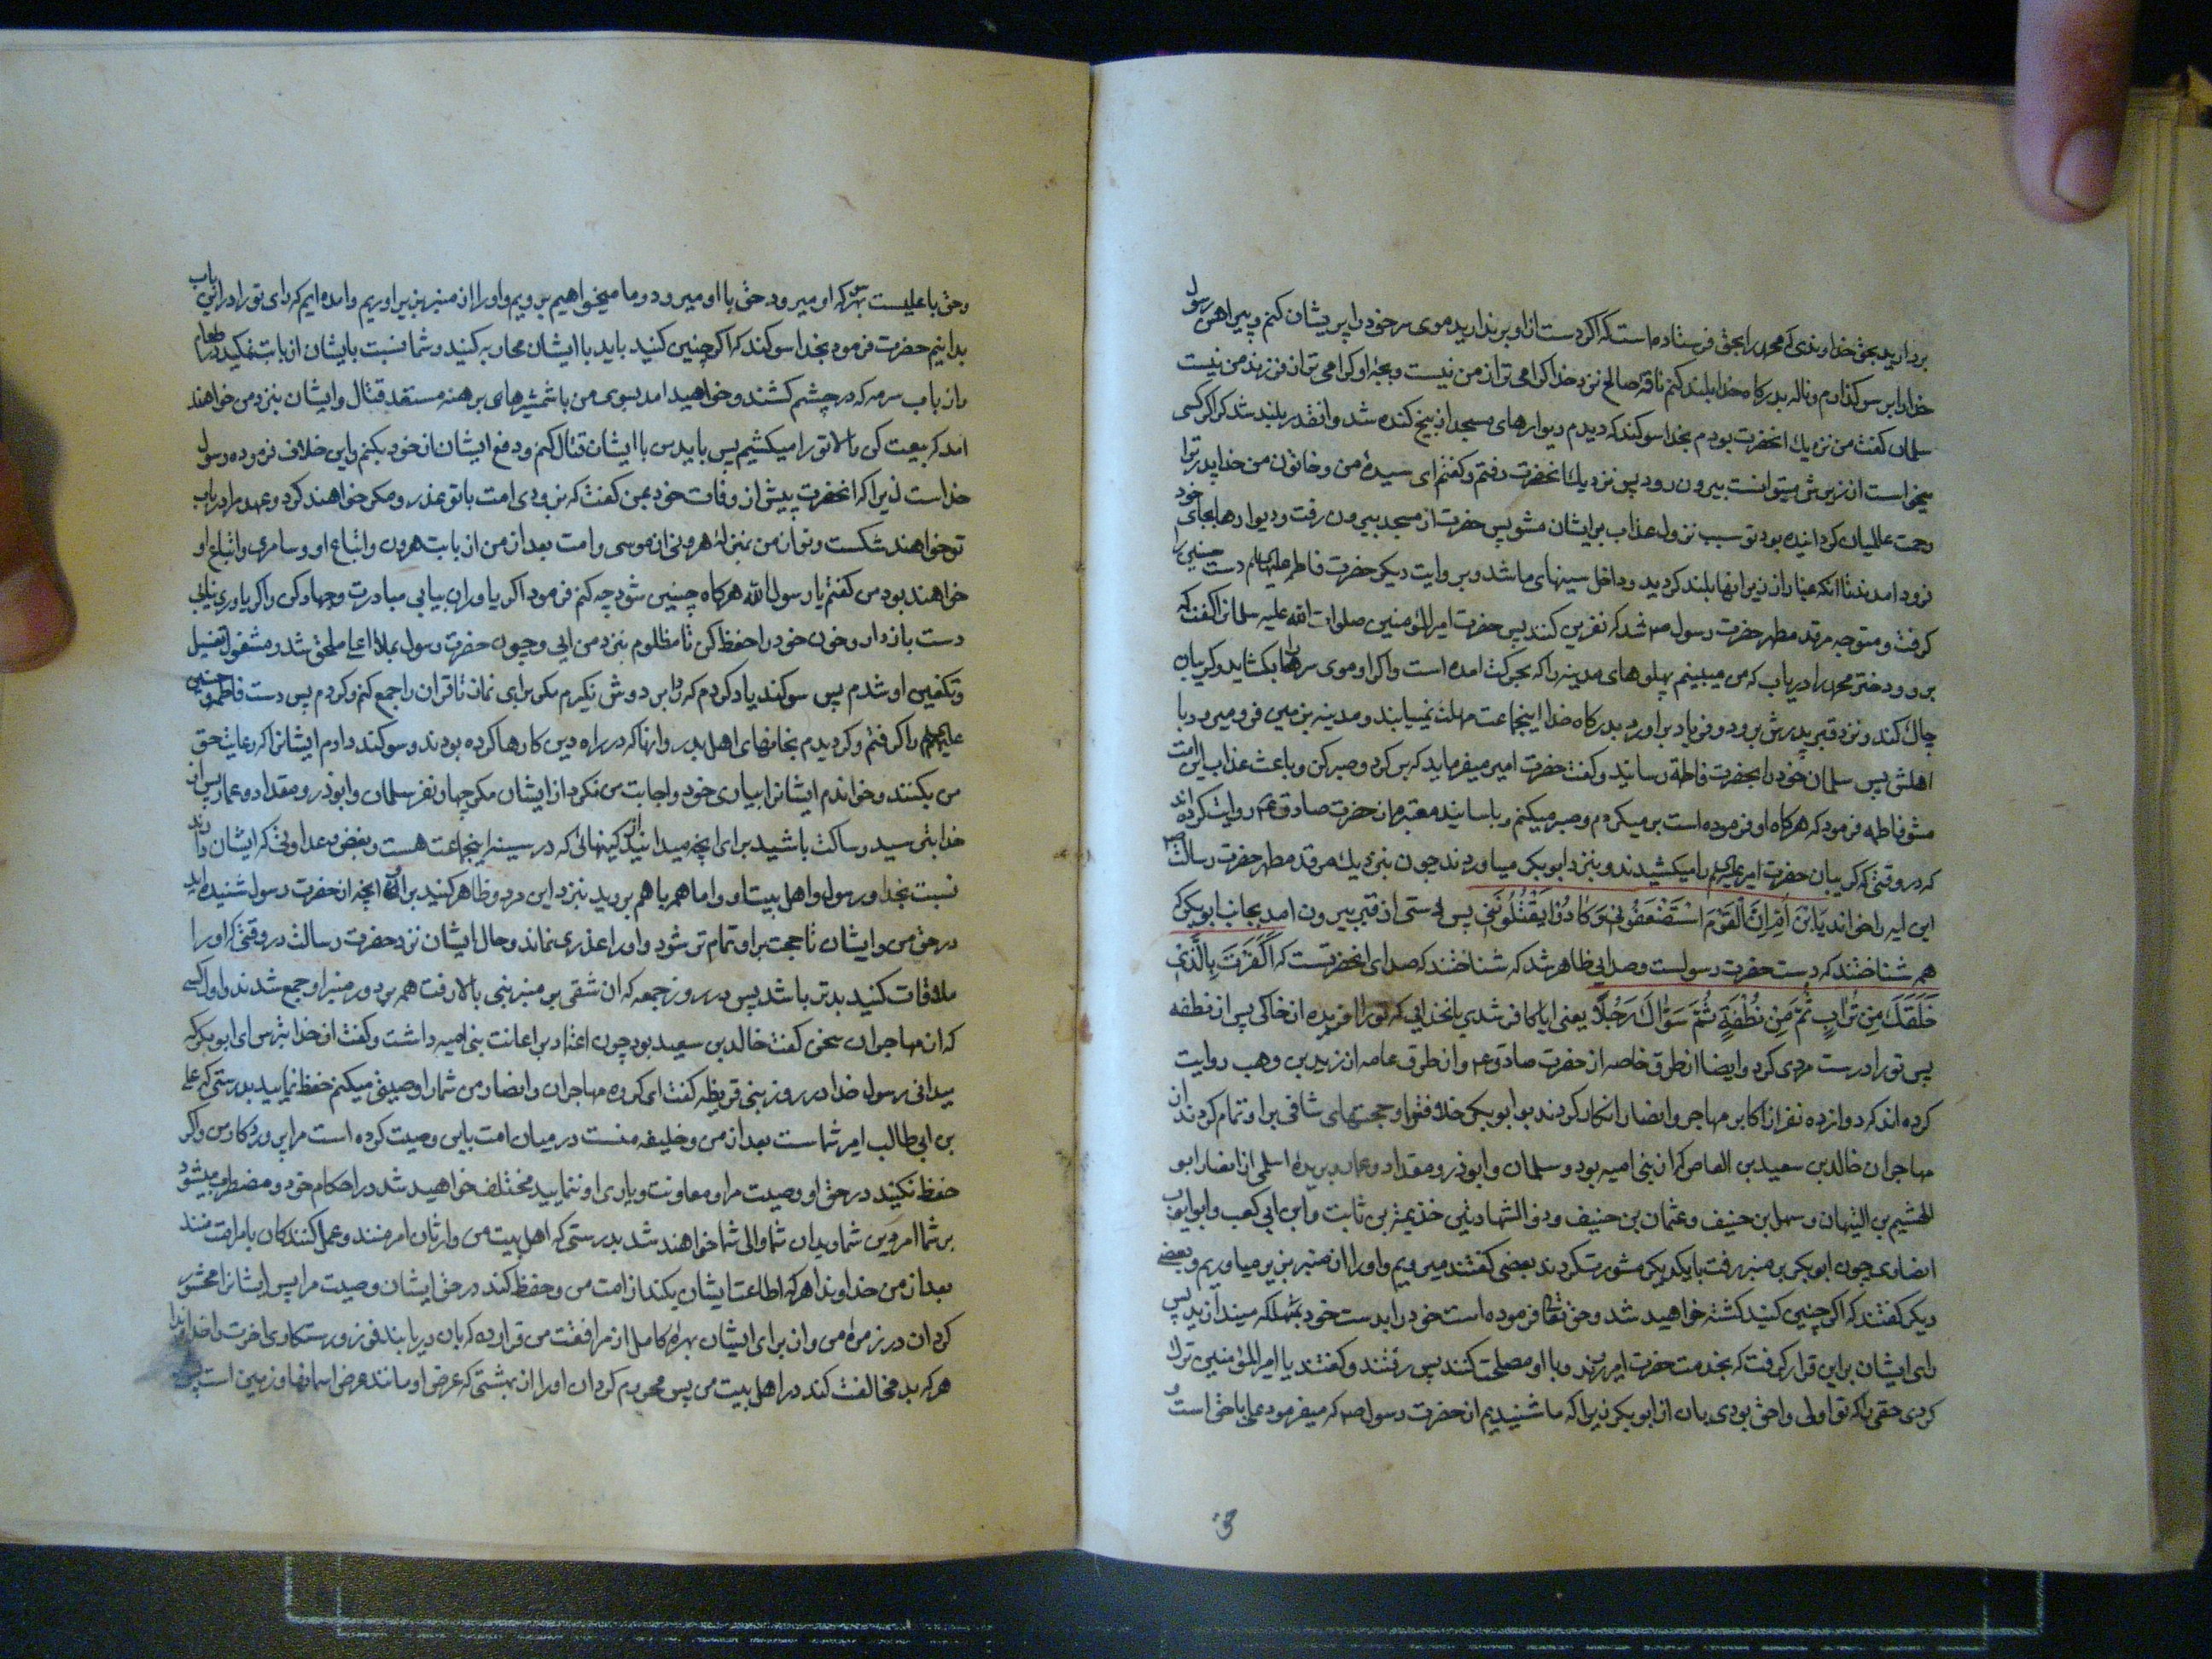 بردارید بحق خداوندی که محمد را بحق فرستاده است که اگر دست از او بر ندارید موی سر خود را پریشان کنم و پیراهن رسول
خدا را بر سر گذارم و ناله بدرکاه خدا بلند کنم ناقهٔ صالح نزد خدا کرامی تر از من نیست و بچهٔ او کرامی تر از فرزند من نیست
سلمان کفت من نزدیك انحضرت بودم بخدا سوکند که دیدم دیوارهای مسجد از بیخ کنده شد و انقدر بلند شد که اگر کسی
میخواست از زیرش میتوانست بیرون رود پس نزدیك انحضرت رفتم و کفتم ای سیدهٔ من و خاتون من خدا پدر ترا
رحمت عالمیان کردانیده بود تو سبب نزول عذاب بر ایشان مشو پس حضرت از مسجد بیرون رفت و دیوارها بجای خود
فرود امدند تا انکه غبار از زیر انها بلند کردید و داخل سینهای ما شد و بروایت دیکر حضرت فاطمه علیها السلام دست حسنین را
کرفت و متوجه مرقد مطهر حضرت رسول ص شد که نفرین کنند پس حضرت امیر المؤمنین صلوات الله علیه سلمانرا کفت که
برو و دختر محمد را دریاب که من میبینم پهلوهای مدینه را که بحرکت امده است واکر او موی سر را بکشاید و کریبان
چاك کند و نزد قبر پدرش برود و فریاد براورد بدرکاه خدا اینجماعت مهلت نمییابند و مدینه بزمین فرو میرود با
اهلش پس سلمان خود را بحضرت فاطمه رسانید و کفت حضرت امیر میفرماید که برکرد و صبر کن و باعث عذاب این امت
مشو فاطمه فرمود که هرکاه او فرموده است بر میکردم و صبر میکنم و باسانید معتبره از حضرت صادق ع م روایت کرده اند
که در وقتی که کریبان حضرت امیر علیه السلم را میکشیدند و بنزد ابوبکر میاوردند چون بنزدیك مرقد مطهر حضرت رسالت ص
این ایه را خواند یَابْنَ اُمَّ اِنَّ الْقَوْمَ اسْتَضْعَفُونِی وَکَادُوا یَقْتُلُونَنِی پس دستی از قبر بیرون امد بجانب ابوبکر که
همه شناختند که دست حضرت رسولست و صدایی ظاهر شد که شناختند که صدای انحضرتست که اَکَفَرْتَ بِالَّذِی
خَلَقَكَ مِنْ تُرَابٍ ثُمَّ مِنْ نُطْفَةٍ ثُمَّ سَوّٰاكَ رَجُلًا یعنی ایا کافر شدی بانخدایی که تورا افریده از خاکی پس از نطفه
پس تورا درست مردی کرد و ایضا از طرق خاصه از حضرت صادق ع م و از طرق عامه از زید بن وهب روایت
کرده اند که دوازده نفر از اکابر مهاجر و انصار انکار کردند بر ابوبکر خلافت او و حجتهای شافی بر او تمام کردند از
مهاجران خالد بن سعید بن العاص که از بنی امیه بود و سلمان و ابوذر و مقداد و عمار بریدهٔ اسلمی از انصار ابو
الهشیم بن التیهان و سهل بن حنیف و عثمان بن حنیف و ذو الشهادتین خذیمة بن ثابت و ابی ابن کعب و ابو ایوب
انصاری چون ابوبکر بر منبر رفت بایکدیکر مشورت کردند بعضی کفتند میرویم و او را از منبر بزیر میاوریم و بعضی
دیکر کفتند که اگر چنین کنید کشته خواهید شد و حق تعالی فرموده است خود را بدست خود بتهلکه میندازید پس
رای ایشان براین قرار کرفت که بخدمت حضرت امیر روند و با او مصلحت کنند پس رفتند و کفتند یا امیر المؤمنین ترك
کردی حقی را که تو اولی و احق بودی بان از ابوبکر زیرا که ما شنیدیم از حضرت رسول ص که میفرمود علی با حق است و
وحق با علیست بهر که او میرود حق با او میرود و ما میخواهیم برویم و او را از منبر بزیر اوریم و امده ایم که رای تورا در این باب
بدانیم حضرت فرمود بخدا سوکند که اگر چنین کنید باید با ایشان محاربه کنید و شما نسبت بایشان از بابت نمکید در طعام
و از باب سرمه که در چشم کشند و خواهید امد بسوی من با شمشیرهای برهنه مستعد قتال و ایشان بنزد من خواهند
امد که بیعت کن والا تورا میکشیم پس باید من با ایشان قتال کنم و دفع ایشان از خود بکنم و این خلاف فرمودهٔ رسول
خداست زیرا که انحضرت پیش از وفات خود بمن کفت که بزودی امت با تو بغدر و مکر خواهند کرد و عهد مرا در باب
تو خواهند شکست و تو از من بمنزلهٔ هرونی از موسی و امت بعد از من از بابت هرون و اتباع او و سامری و اتباع او
خواهند بود من کفتم یا رسول الله هرکاه چنین شود چه کنم فرمود اگر یاوران بیابی مبادرت و جهاد کن و اگر یاوری نیابی
دست بازدار و خون خود را حفظ کن تا مظلوم بنزد من ایی و چون حضرت رسول بملاء اعلی ملحق شد و مشغول تغسیل
و تکفین او شدم پس سوکند یاد کردم که ردا بر دوش نکیرم مکر برای نماز تا قران را جمع کنم و کردم پس دست فاطمه و حسنین
علیهم السلم را کرفتم و کردیدم بخانهای اهل بدر و انها که در راه دین کارها کرده بودند و سوکند دادم ایشانرا که رعایت حق
من بکنند و خواندم ایشانرا بیاری خود و اجابت من نکرد از ایشان مکر چهار نفر سلمان و ابوذر و مقداد و عمار پس از
خدا بترسید و ساکت باشید برای انچه میدانید از کینهائی که در سینه اینجماعت هست و بغض و عداوتی که ایشان دارند
نسبت بخدا و رسول و اهل بیت او و اما همه با هم بروید بنزد این مرد و ظاهر کنید بر او انچه از حضرت رسول شنیده اید
در حق من و ایشان تا حجت بر او تمام تر شود و او را عذری نماند و حال ایشان نزد حضرت رسالت در وقتی که او را
ملاقات کنید بدتر باشد پس در روز جمعه که ان شقی بر منبر بنی بالا رفت همه بر دور منبر او جمع شدند و اول کسی
که از مهاجران سخن کفت خالد بن سعید بود چون اعتماد بر اعانت بنی امیه داشت و کفت از خدا بترس ای ابوبکر که
میدانی رسول خدا در روز بنی قریظه کفت ای کروه مهاجران و انصار من شمارا وصیتی میکنم حفظ نمایید بدرستی که علی
بن ابی طالب امیر شماست بعد از من و خلیفه منست در میان امت باین وصیت کرده است مرا پروردکار من و اگر
حفظ نکنید در حق او وصیت مرا و معاونت و یاری او ننمایید مختلف خواهید شد در احکام خود و مضطرب میشود
بر شما امر دین شما و بدان شما والی شما خواهند شد بدرستی که اهل بیت من وارثان امر منند و عمل کنندکان بامر امت منند
بعد از من خداوندا هرکه اطاعت ایشان بکند از امت من و حفظ کند در حق ایشان وصیت مرا پس ایشانرا محشور
کردان در زمرهٔ من و ان برای ایشان بهرهٔ کامل از مرافقت من قرار ده که بان دریابند فوز و رستکاری اخرت را خداوندا
هرکه بد مخالفت کند در اهل بیت من پس محروم کردان او را از بهشتی که عرض او مانند عرض اسمانها و زمین است پس